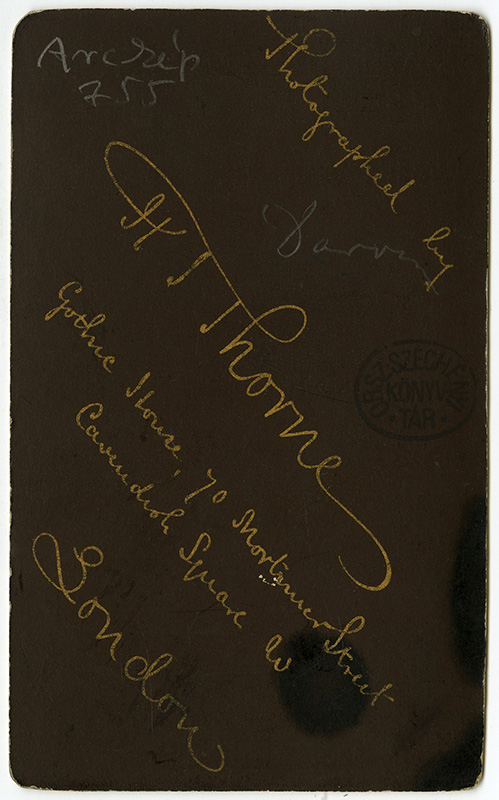 Arckép
755
Photographed by
Darvin
H S Thorne
Gothic House, 70 Mortimer Street
Cavendish Square W
London
ORSZ. SZÉCHÉNYI
KÖNYV
TÁR